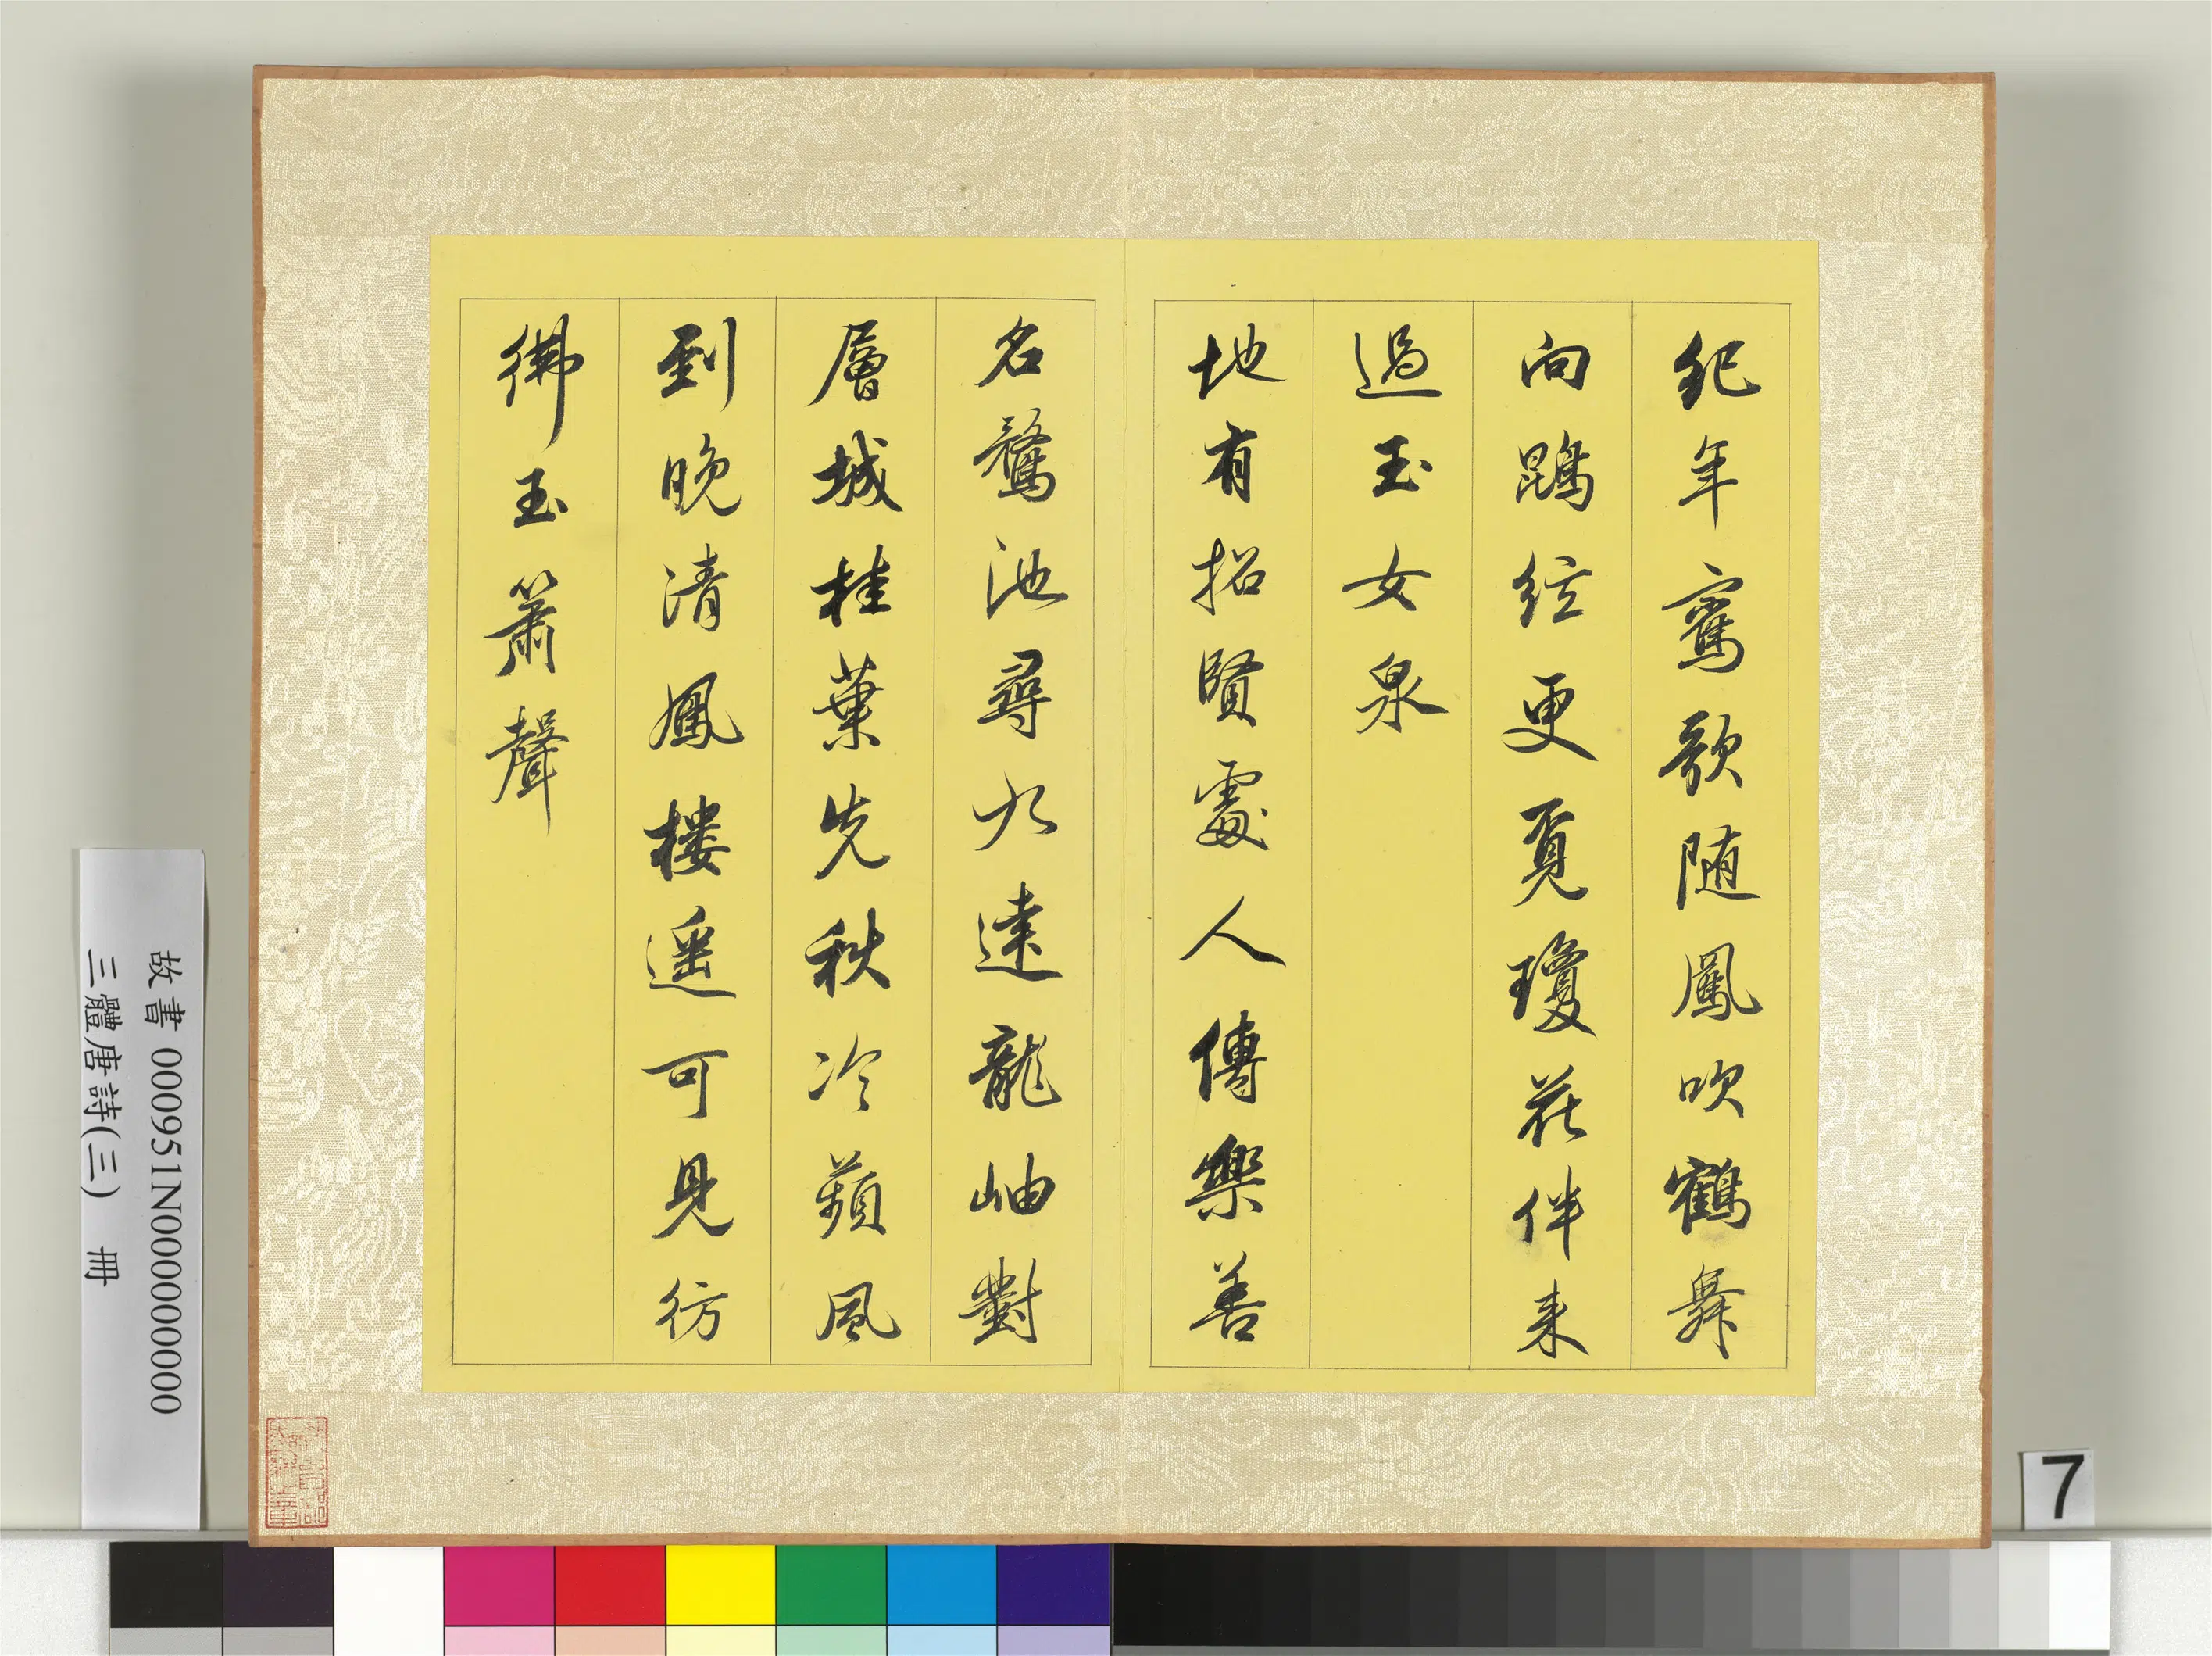 紀年鸞歌随鳳吹鶴舞
向鵾絃更覓瓊花伴来
過玉女泉
地有招賢處人傳樂善
名鶩池尋九逵龍岫對
層城桂葉先秋冷蘋風
到晚清鳳樓遥可見彷
彿玉簫聲
故書 000951N000000000
三體唐詩(三) 冊
7